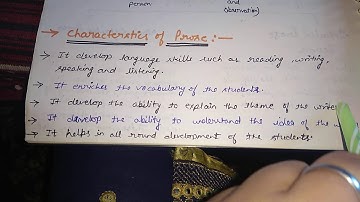 person
and
observation)
→ Characteristics of Prose:-
→ It develop language skills such as reading, writing,
speaking and listening.
→ It enriches the vocabulary of the students.
→ It develop the ability to explain the theme of the
→ It develop the ability to understand the idea of the
→ It helps in all round development of the students.